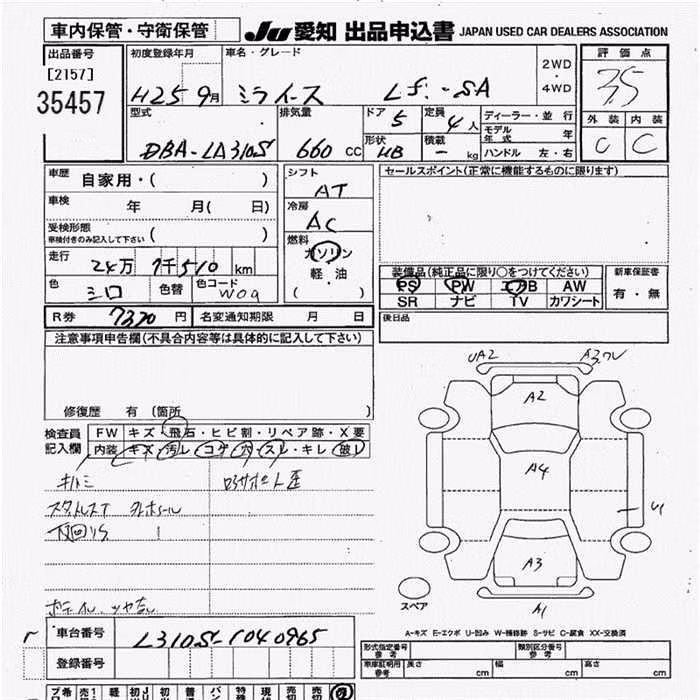 車内保管・守衛保管
JU 愛知 出品申込書 JAPAN USED CAR DEALERS ASSOCIATION
出品番号
[2157]
35457
初度登録年月
H25 9月
車名・グレード
ミライース
2WD
・
4WD
評価点
3.5
外装 内装
C C
型式
DBA-LA310S
排気量
660 CC
ドア
5
形状
HB
定員
4人
積載
- kg
ディーラー・並行
モデル年式 年
ハンドル 左・右
車歴
自家用・( )
車検
年 月( 日)
受検形態
車検付きのみ記入して下さい ( )
走行
24万 7千510 km
色
シロ
色替
色コード
W09
R券 7370 円
名変通知期限 月 日
シフト
AT
冷房
AC
燃料
ガソリン
軽・油
( )
セールスポイント(正常に機能するものに限ります)
装備品(純正品に限り○をつけてください)
PS PW エアB AW
SR ナビ TV カワシート
新車保証書
有・無
後日品
注意事項申告欄(不具合内容等は具体的に記入して下さい)
修復歴 有 (箇所 )
検査員記入欄
FW キズ・飛石・ヒビ割・リペア跡・X要
内装 キズ・汚レ・コゲ・穴・スレ・キレ・破レ
UA2
A2
A4
A3
A1
U1
スペア
A-キズ E-エクボ U-凹み W-補修跡 S-サビ C-腐食 XX-交換済
車台番号
L310S-1040965
登録番号
型式指定番号
参考
類別区分番号
参考
車庫証明用
参考
長さ cm 幅 cm 高さ cm